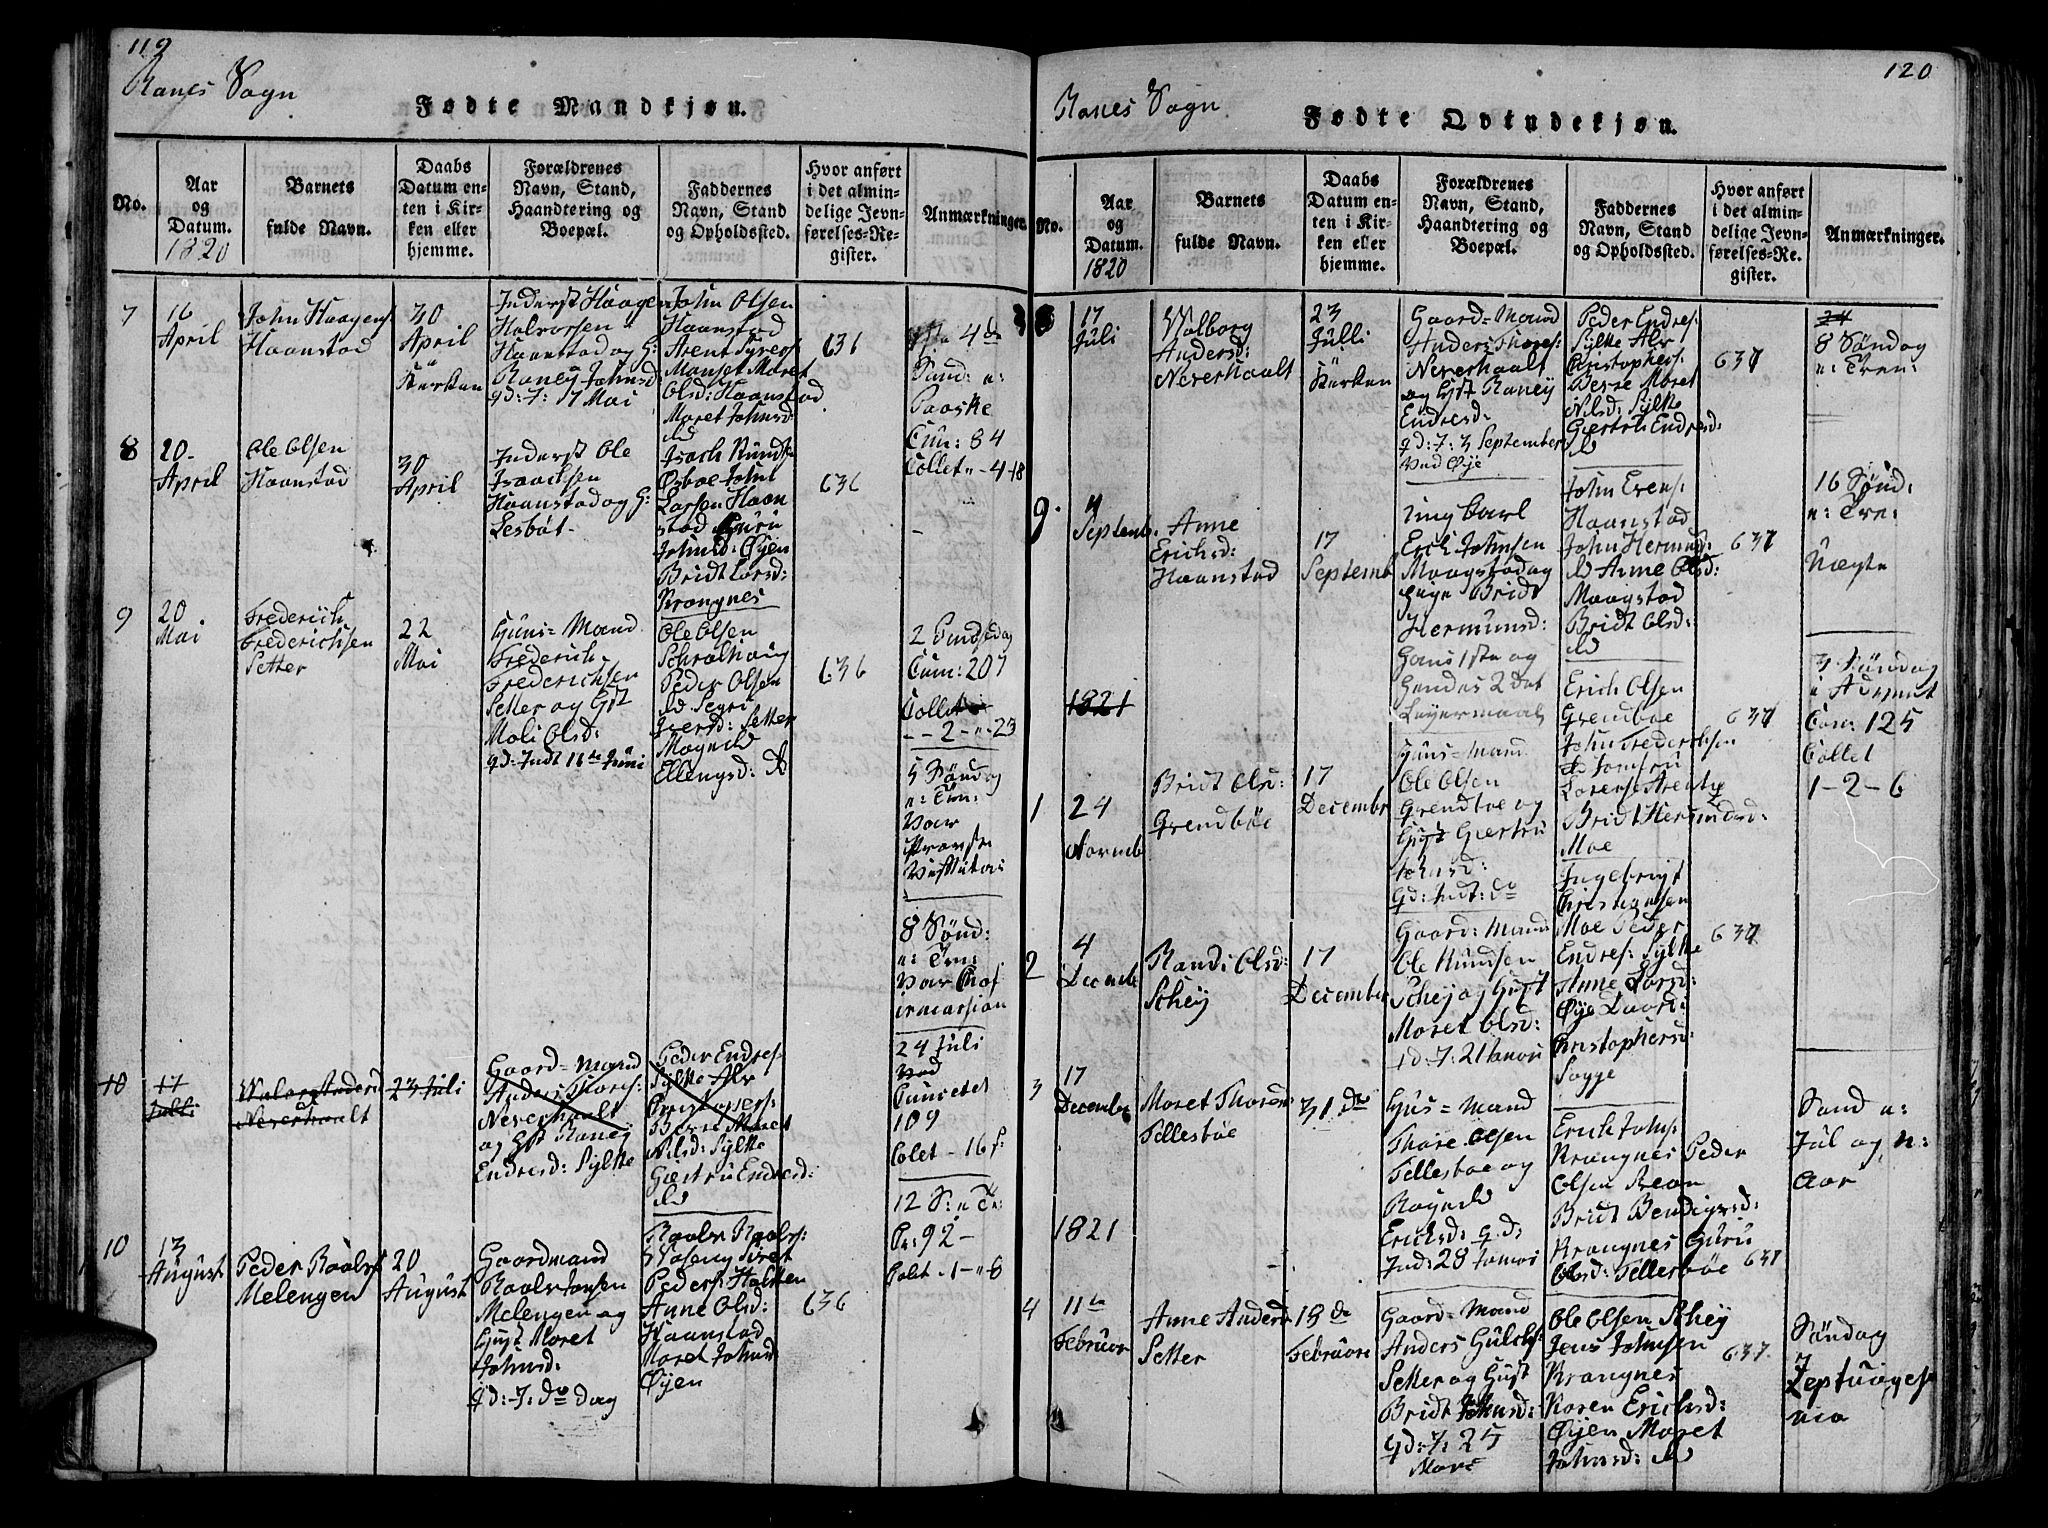 119
Ranes Sogn
Fødte Mandkjøn.
No.
Aar
og
Datum.
1820
Barnets
fulde Navn.
Daabs
Datum en-
ten i Kir-
ken eller
hjemme.
Forældrenes
Navn, Stand,
Haandtering og
Boepæl.
Faddernes
Navn, Stand
og Opholdssted.
Hvor anført
i det almin-
delige Jevn-
førelses-Re-
gister.
Anmærkninger.
7
16
April
John Haagens
Haanstad
30
April
Kirken
Inderst Haagen
Halvorsen
Haanstad og G:
Raney Johnsd
gd: 7: 17 Mai
John Olsen
Haanstad
Arent Syvers:
Manset Maret
Olsd: Haanstad
Maret Johnsd:
636
4de
Sand: e:
Paaske
Cum: 84
Collet
8
20
April
Ole Olsen
Haanstad
30
April
Inderst Ole
Isaachsen
Haanstad og G:
Lesbet
Isach Knuds
Øsboe John
Larsen Haan
stad Guru
Johnsd: Øyen
Bridt Larsd:
Krangnes
636
9
20
Mai
Frederich
Frederichsen
Setter
22
Mai
Huus-Mand
Frederich
Frederichsen
Setter og Gst
Mali Olsd:
Ole Olsen
Peder Olsen
Iversd: Setter
Magnild
Ellengsd:
636
2 Pindsedag
Cum: 207
Collet
- - 2 - " - 23
5 Søndag
e: Tri:
Var
8 Sønd:
e: Tre:
Var
24 Juli
109
Colet - 16 s:
10
17
Julli
Valborg Andersd
Neverhaalt
23 Juli
Gaard-Mand
Anders Thores:
Neverhaalt
og Gst Raney
Endresd: Sylte
Peder Endres:
Sylte
Christophers:
Maret
Nilsd: Sylte
Giertru Endresd:
10
13
August
Peder Roalds
Melengen
20
August
Gaardmand
Melengen og
Gust Maret
Johnsd:
gd: 7: do dag
Peders: Halsten
Anne Olsd:
Haanstad
Maret Johnsd
Øyen
636
12 S: e Tr:
C: 92 -
Colet - 1 - " - 8
120
Ranes Sogn
Fødte Qvindekjøn.
No.
Aar
og
Datum.
1820
Barnets
fulde Navn.
Daabs
Datum en-
ten i Kir-
ken eller
hjemme.
Forældrenes
Navn, Stand,
Haandtering og
Boepæl.
Faddernes
Navn, Stand
og Opholdssted.
Hvor anført
i det almin-
delige Jevn-
førelses-Re-
gister.
Anmærkninger.
8
17
Juli
Valborg
Andersd:
Neverhaalt
23
Julli
Kirken
Gaard-Mand
Anders Thores:
Neverhaalt
og Gst Raney
Endresd:
gd: 7: 3 September
Ved Øye
Peder Endres:
Sylte
Christophers:
Maret
Nilsd: Sylte
Giertru Endresd:
637
24
8 Søndag
e: Tren:
9.
Septemb.
Anne
Erichsd:
Haanstad
17
Septemb
Ung Carl
Erich Johnsen
Maagstad og
Pige Bridt
Hermunsd:
Hans 1ste og
Hendes 2det
Leyermaal
John Evens:
Haanstad
John Hermund:
Anne Olsd:
Maagstad
Bridt Olsd:
637
16 Sønd:
e: Tre:
Nægte
1821
1
24
Novemb
Bridt Olsd:
Grendbøe
17
Decembr
Huus-Mand
Ole Olsen
Grendbøe og
Gust Giertru
Johnsd:
Gd: Indt: do
Erich Olsen
Grendboe
John Frederichsen
Jomfru
Bridt Hermundsd:
Moe
637
3 Søndag
i Advent
Com: 125
Collet
1 - 2 - 6
2
4
Decemb
Randi Olsd:
Schey
17
December
Gaard-Mand
Ole Knudsen
Schey og Gust
Maret Olsd:
gd: 7: 21 Januari
Ingebrigt
Christiansen
Moe Peder
Endres: Sylte
Anne Larsd:
Øye
Christophersd:
Sogge
637
3
17
December
Maret Thoresd
Tellesbøe
31 de
Huus-Mand
Thore Olsen
Tellesbøe og
Ragnild
Erichsd: g: d:
Ind: 28 Januar
Erich Johns:
Krangnes Peder
Olsen
Bridt Bendigtsd:
Krangnes Guru
Olsd: Tellesbøe
637
Sand e:
Jul og n:
Aar
1821
4
11te
Februar
Anne Andersd
Setter
18 de
Februar
Gaard-Mand
Anders
Setter og Gust
Bridt Johnsd:
gd: 7: 25
Mars
Ole Olsen Schey
Jens Johnsen
Krangnes
Karen Erichsd:
Øyen Maret
Johnsd:
637.
Søndag
Septuages